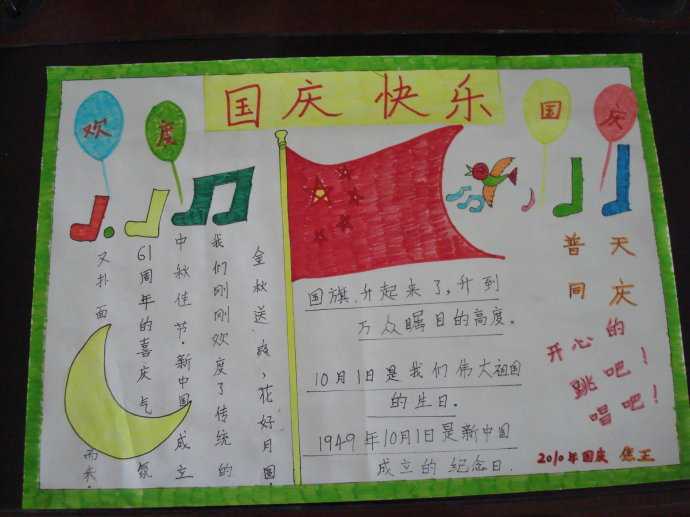 国庆快乐
欢度
国庆
金秋送爽，花好月圆
我们刚刚欢度了传统的
中秋佳节.新中国成立
61周年的喜庆气氛
又扑面而来.
国旗.升起来了,升到
万众瞩目的高度.
10月1日是我们伟大祖国
的生日.
1949年10月1日是新中国
成立的纪念日.
普天
同庆
开心的
跳吧！
唱吧！
2010年国庆